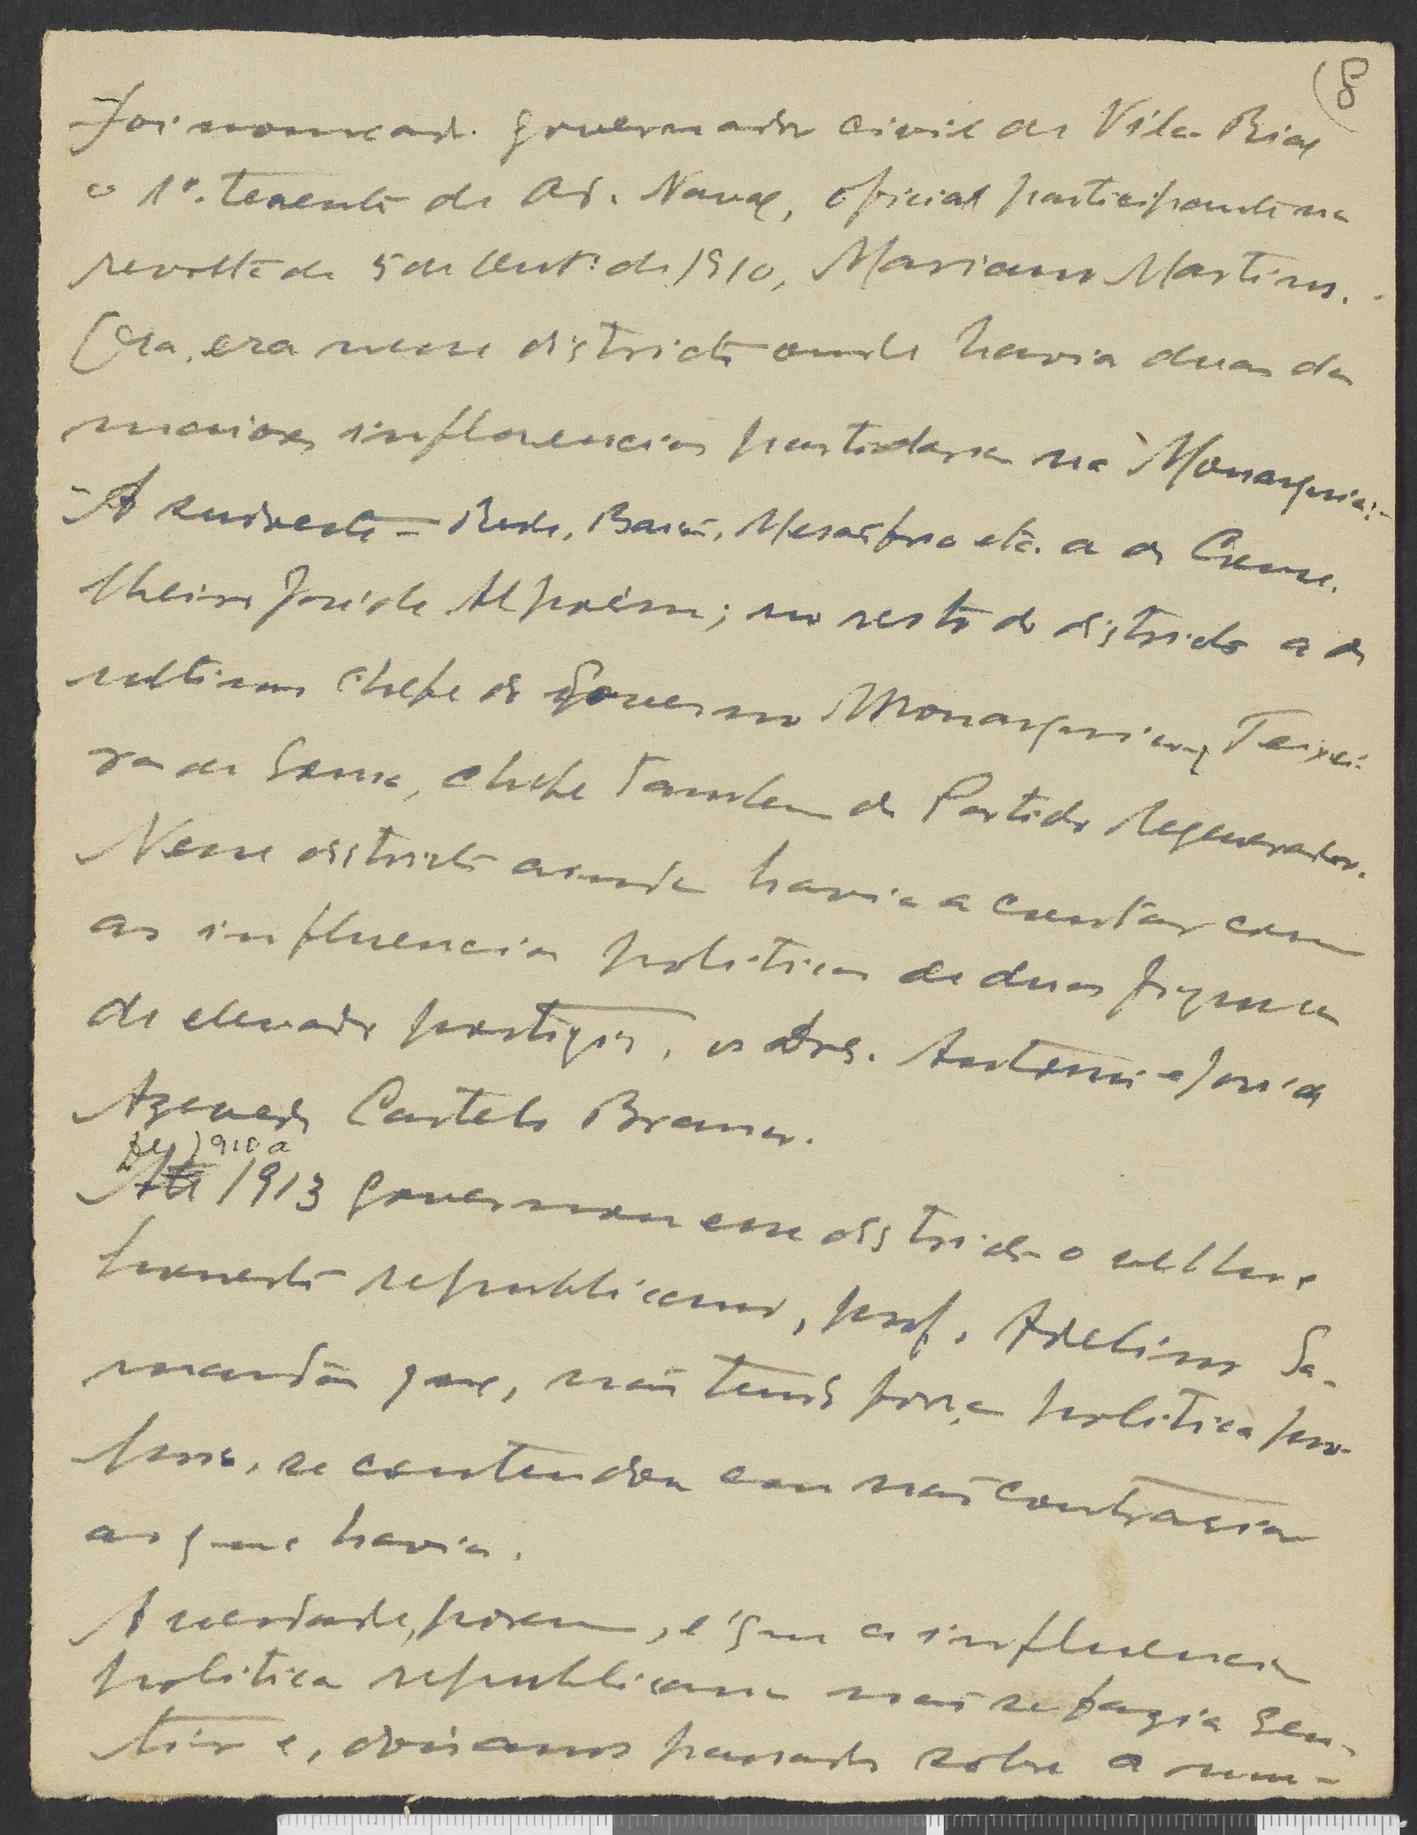 (8
Foi nomeado governador civil de Vila Rial
o 1º. tenente de Ad. Naval, oficial participante na
revolta de 5 de Outº. de 1910, Mariano Martins.
Ora, era nesse districto onde havia duas das
maiores influencias partidarias na Monarquia:-
- A sudoeste - Rede, Barró, Mesãofrio etc. a do Conse-
lheiro José de Alpoim; no resto do districto a do
ultimo chefe do Governo Monarquico, Teixei-
ra de Sousa, chefe tambem do Partido Regenerador.
Nesse districto ainda havia a contar com
as influencias politicas de duas figuras
de elevado prestigio, os Drs. Antonio e José de
Azevedo Castelo Branco.
De 1910 a
Até 1913 governou esse districto o velho e
honesto republicano, prof. Adelino Sa-
mardã que, não tendo força politica pro-
pria, se contendou em não contrariar
as que havia.
A verdade, porem, é que a influencia
politica republicana não se fazia sen-
tir e, dois anos passados sobre a mu-